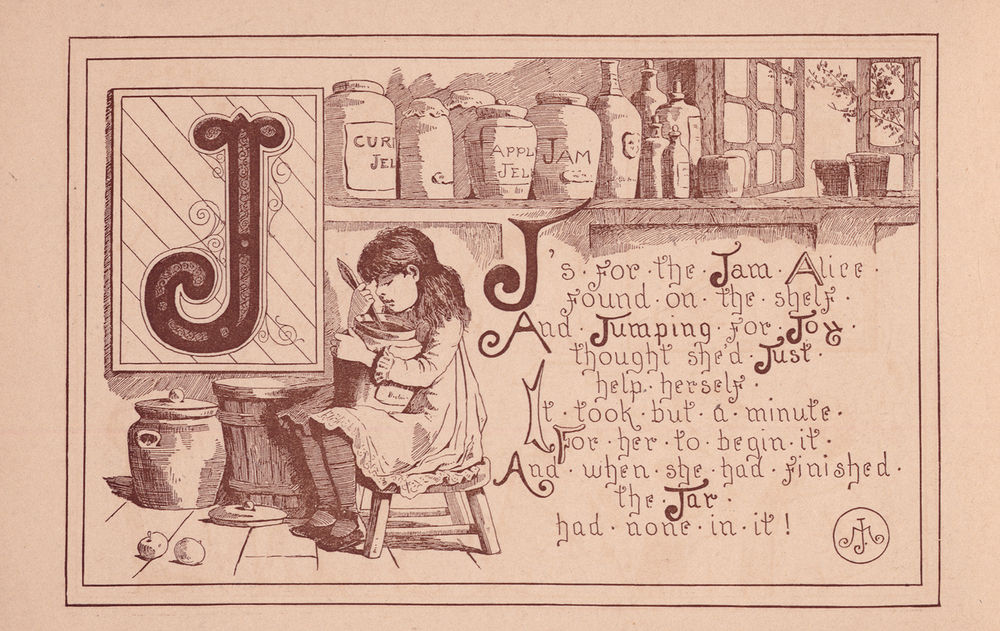 J
CUR
JEL
APPL
JELL
JAM
J's for the Jam Alice
found on the shelf
And Jumping for Joy
thought she'd Just
help herself
It took but a minute
For her to begin it
And when she had finished
the Jar
had none in it!